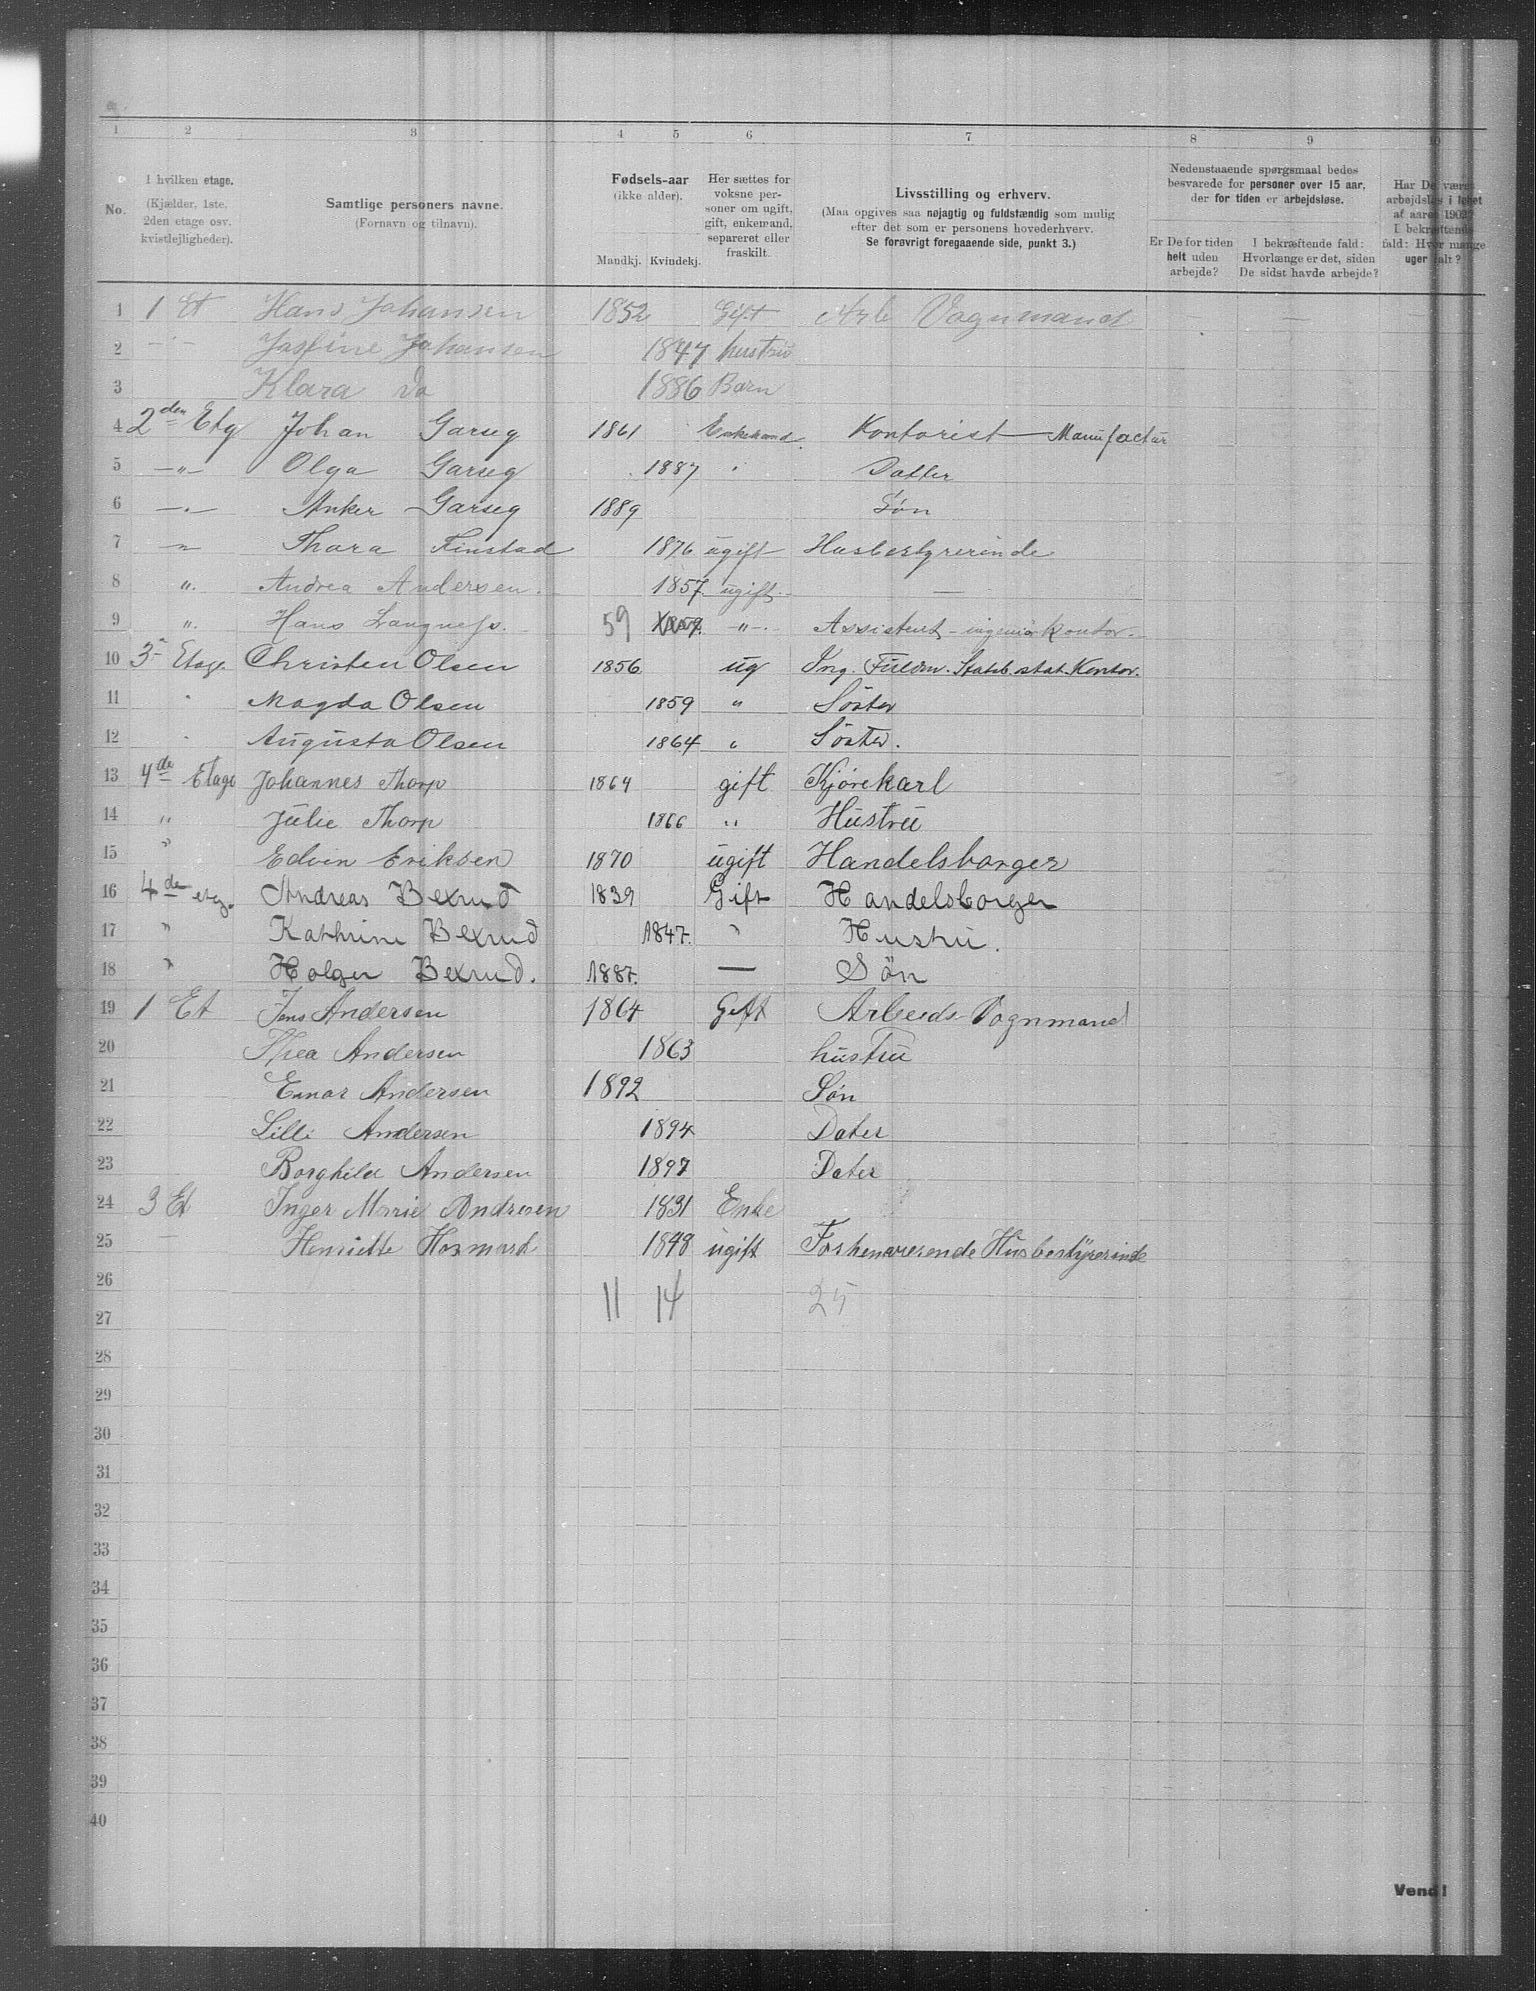 1 2 3 4 5 6 7 8 9 10
No.
I hvilken etage.
(Kjælder, 1ste, 2den etage osv. kvistlejligheder).
Samtlige personers navne.
(Fornavn og tilnavn).
Fødsels-aar
(ikke alder).
Mandkj. Kvindekj.
Her sættes for voksne personer om ugift, gift, enkemand, separeret eller fraskilt.
Livsstilling og erhverv.
(Maa opgives saa nøjagtig og fuldstændig som mulig efter det som er personens hovederhverv.
Se forøvrigt foregaaende side, punkt 3.)
Nedenstaaende spørgsmaal bedes besvarede for personer over 15 aar, der for tiden er arbejdsløse.
Er De for tiden helt uden arbejde?
I bekræftende fald: Hvorlænge er det, siden De sidst havde arbejde?
Har De været arbejdsløs i løbet af aaret 1902? I bekræftende fald: Hvor mange uger ialt?
1 1 Et Hans Johansen 1852 Gift Arb Vognmand — —
2 -"- Josfine Johansen 1847 hustru
3 Klara Do 1886 Barn
4 2den Etg Johan Garseg 1861 Enkemand. Kontorist — Manufactur
5 —"— Olga Garseg 1887 " Datter
6 —"— Anker Garseg 1889 Søn
7 —"— Thora Finstad 1876 ugift Husbestyrerinde
8 ". Andrea Andersen. 1857. ugift. —
9 ". Hans Langness. 59 1859. -"-. Assistent - ingeniørkontor.
10 3 Etage Christen Olsen 1856 ug Ing. Fuldm. Statsb. stat. Kontor.
11 " Magda Olsen 1859 " Söster
12 " Augusta Olsen 1864 " Söster.
13 4de Etage Johannes Thorp 1864 gift Kjørekarl
14 " Julie Thorp 1866 " Hustru
15 " Edvin Eriksen 1870 ugift Handelsborger
16 4de etg. Andreas Bexrud 1839 Gift Handelsborger
17 " Kathrine Bexrud 1847. " Hustru.
18 " Holger Bexrud. 1887. — Søn
19 1 Et Jens Andersen 1864 Gift Arbeids-Vognmand
20 Thea Andersen 1863 hustru
21 Einar Andersen 1892 Søn
22 Lilli Andersen 1894 Dater
23 Borghild Andersen 1897 Dater
24 3 Et Inger Marie Andresen 1831 Enke
25 — Henriette 1848 ugift Forhenværende Husbestyrerinde
26 11 14 25
27
28
29
30
31
32
33
34
35
36
37
38
39
40
Vend!